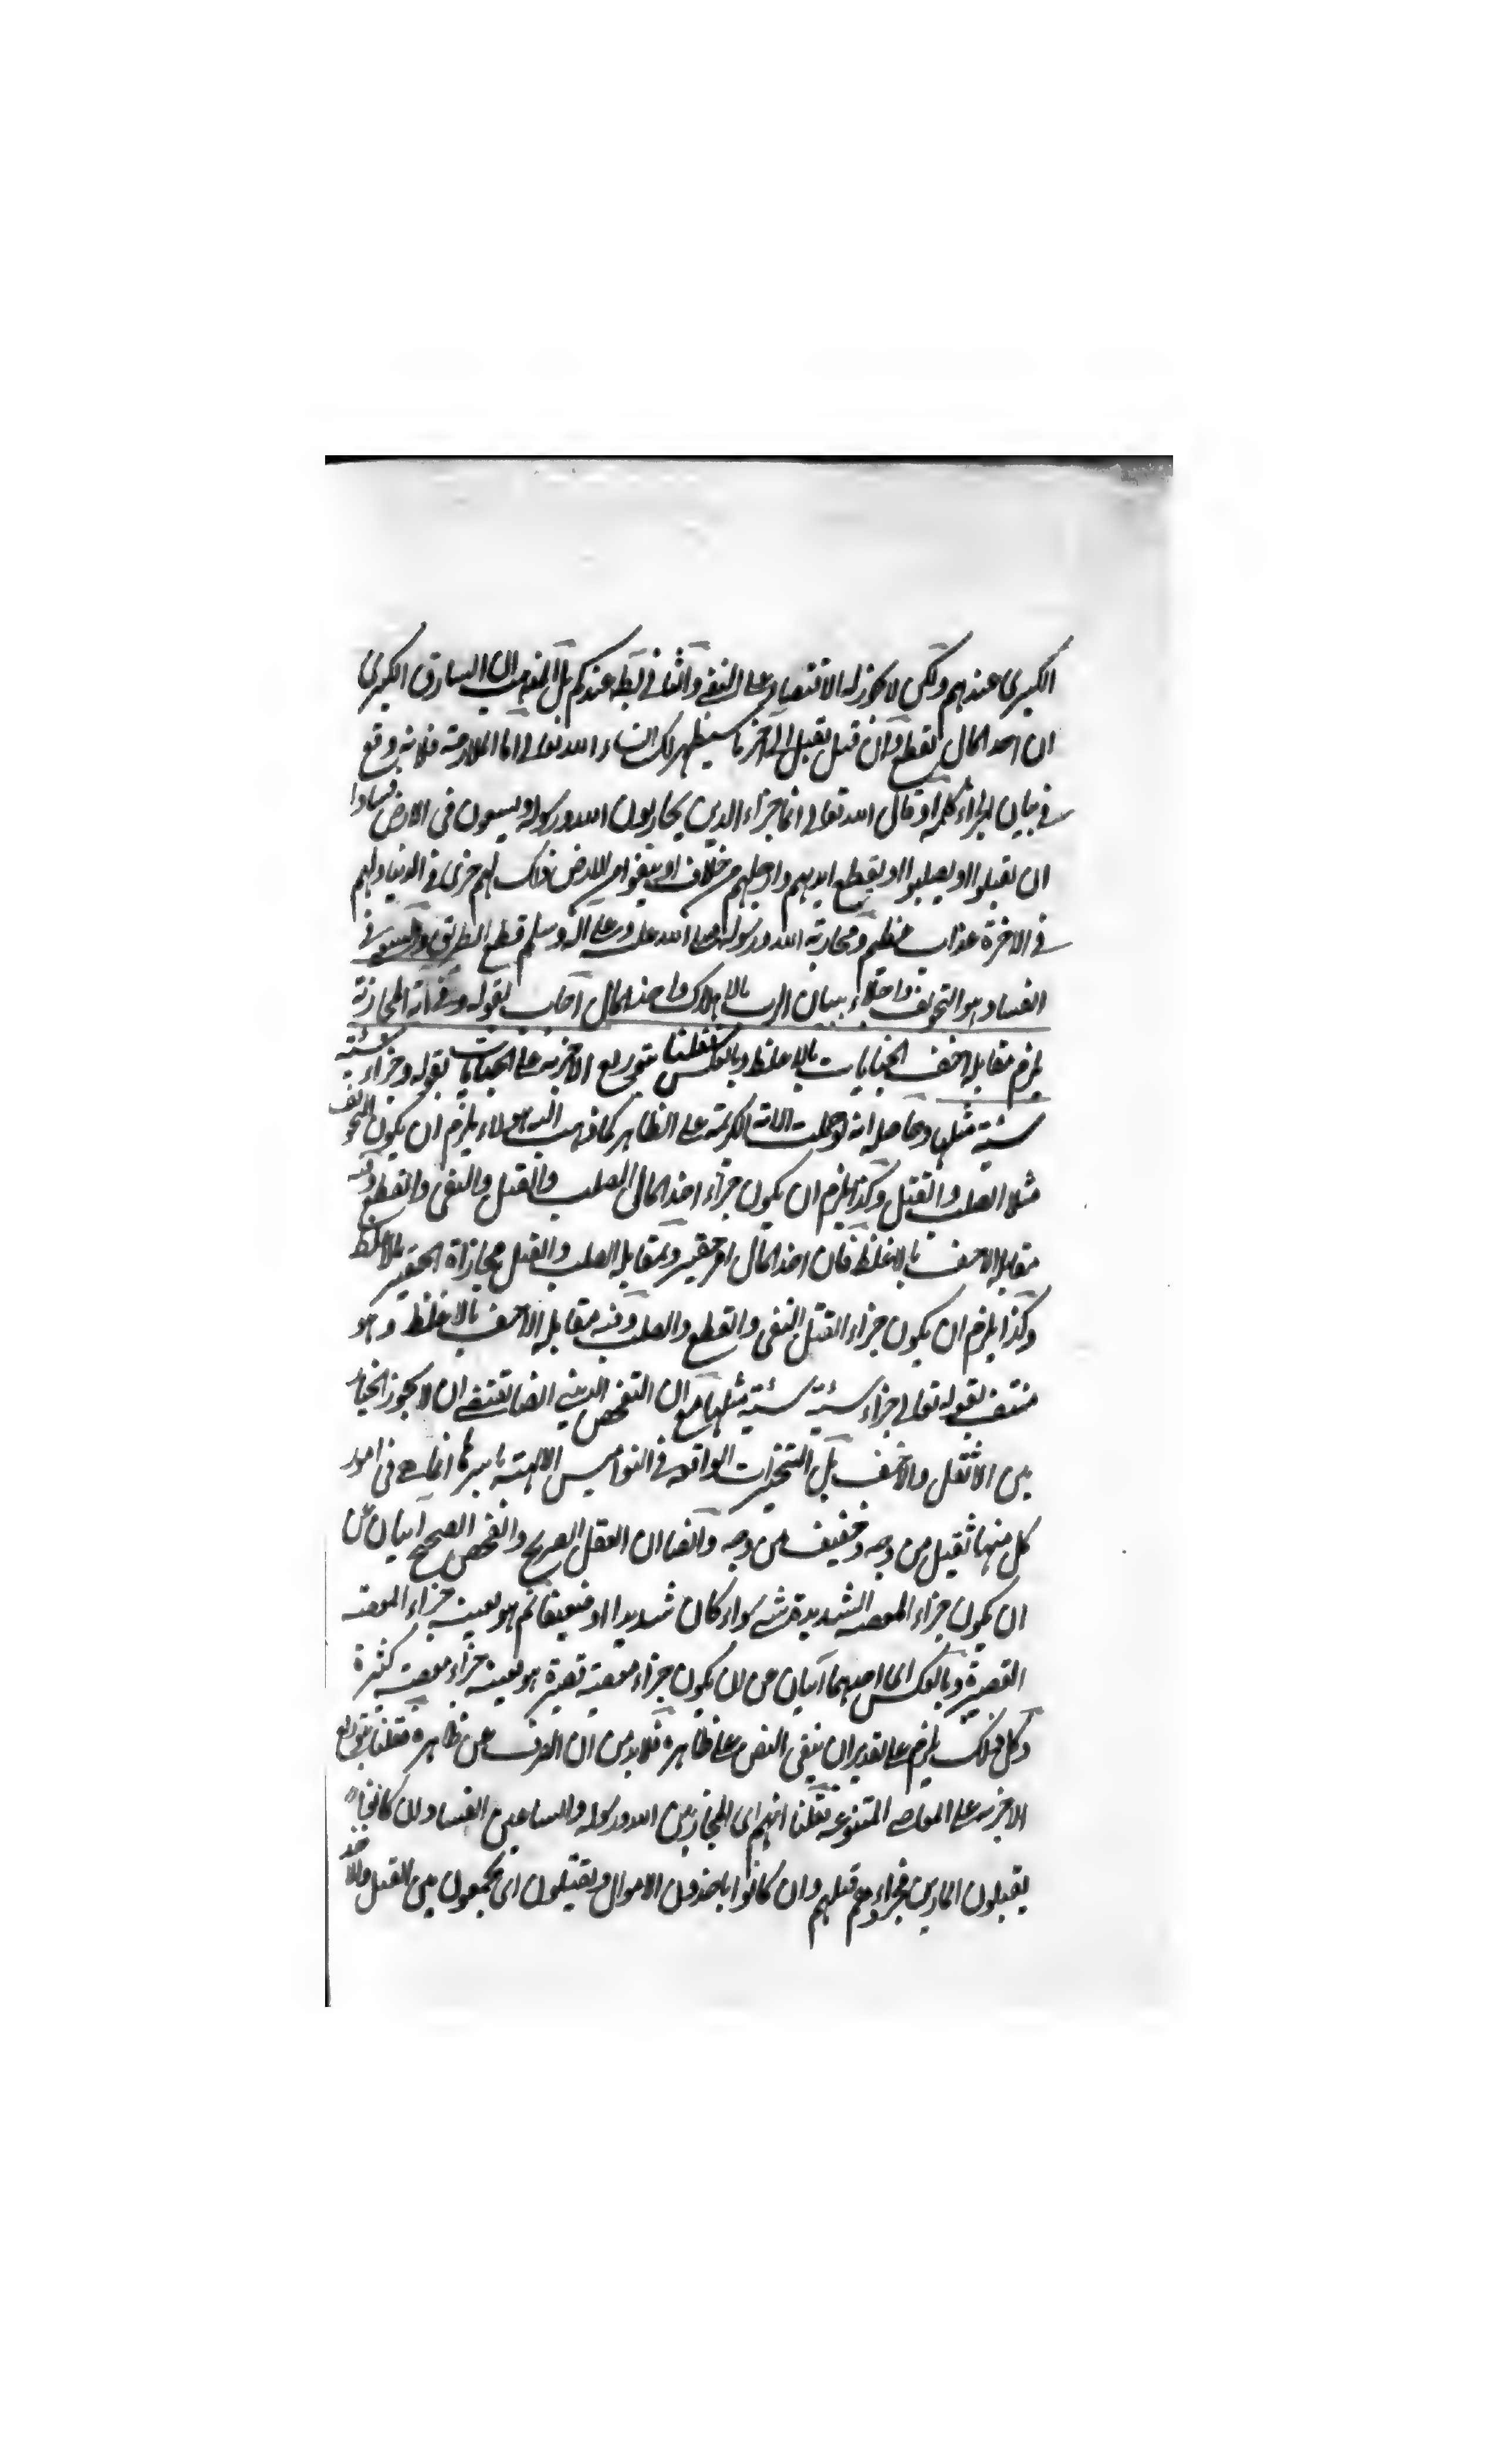 الكبرى عندهم ولكن لا يجوز له الاقتصار على النفي والثاني بط عندكم بل المذهب ان السارق الكبرى
ان اخذ المال يقطع وان قتل يقتل الى آخر ما سيظهر لك انشاء الله تعالى اما الملازمة فلانه وقع
في بيان الجزاء كلمة او قال الله تعالى انما جزاء الذين يحاربون الله ورسوله ويسعون في الارض فسادا
ان يقتلوا او يصلبوا او يقطع ايديهم وارجلهم من خلاف او ينفوا من الارض ذلك لهم خزى في الدنيا ولهم
في الاخرة عذاب عظيم ومحاربة الله ورسوله صلى الله عليه وعلى آله وسلم قطع الطريق والسعي في
الفساد هو التخويف واخلاء السبيل بالاهلاك واخذ المال اجاب بقوله وفي آية المحاربة
يلزم مقابلة اخف الجنايات بالاغلظ وبالعكس فقلنا بتوزيع الاجزية على الجنايات لقوله وجزاء سيئة
سيئة مثلها وحاصله انه لو حملت الاية الكريمة على الظاهر كما ذهب اليه هولاء يلزم ان يكون التخويف
مثلا الصلب والقتل وكذا يلزم ان يكون جزاء اخذ المال الصلب والقتل والنفي والقطع وفيه
مقابلة الاخف بالاغلظ فان اخذ المال امر حقير ومقابلة الصلب والقتل مجازاة الحقير بالاغلظ
وكذا يلزم ان يكون جزاء القتل النفي والقطع والصلب وفيه مقابلة الاخف بالاغلظ وهو
منتف بقوله تعالى جزاء سيئة سيئة مثلها مع ان التفحص الديني ايضا يقتضي ان لا يجوز الخيار
بين الاثقل والاخف بل التخييرات الواقعة في النواميس الالهية باسرها انما هي في امور
كل منها ثقيل من وجه وخفيف من وجه وايضا ان العقل الصريح والفحص الصحيح آبيان عن
ان يكون جزاء المعصية الشديدة شيء سواء كان شديدا او ضعيفا ثم هو بعينه جزاء المعصية
القصيرة وبالعكس اي انهما آبيان عن ان يكون جزاء معصية قصيرة هو بعينه جزاء معصية كثيرة
وكل ذلك يلزم على تقدير ان يبقى النص على ظاهره فلا بد من ان الصرف عن ظاهره فقلنا بتوزيع
الاجزية على المعاصي المتنوعة فقلنا انهم اى المحاربين الله ورسوله والساعين الفساد ان كانوا
يقتلون المارين فجزاءهم قتلهم وان كانوا ياخذون الاموال ويقتلون اى يجمعون بين القتل والاخذ